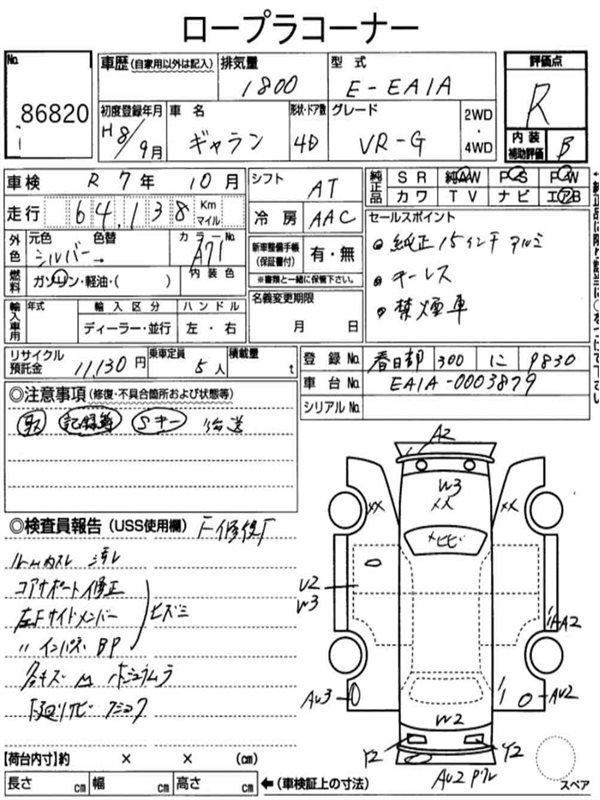 ロープラコーナー
No.
86820
車歴 (自家用以外は記入)
排気量
1800
型式
E-EA1A
評価点
R
内装
補助評価
B
初度登録年月
H8/9月
車名
ギャラン
形状・ドア数
4D
グレード
VR-G
2WD
・
4WD
車検 R 7年 10月
シフト
AT
純正品
SR 純AW PS PW
カワ TV ナビ エアB
走行 64,138 Km マイル
冷房
AAC
セールスポイント
純正15インチアルミ
キーレス
禁煙車
外色
元色
色替
シルバー→
カラーNo.
A71
新車整備手帳
(保証書付)
有・無
※書類と一緒に保管下さい。
燃料
ガソリン・軽油・( )
内装色
名義変更期限
月 日
輸入車用
年式
輸入区分
ハンドル
ディーラー・並行
左・右
リサイクル
預託金
11,130円
乗車定員
5人
積載量
t
登録No.
春日部 300 に 9830
車台No.
EA1A-0003879
シリアルNo.
◎注意事項(修復・不具合箇所および状態等)
取 記録簿 Sキー 後送
◎検査員報告(USS使用欄)
コアサポート修正
左Fサイドメンバー
〃インパネ BP
ヒズミ
A2
W3
XX
XX
XX
U2
W3
AA2
AU3
AU2
W2
Y2
Y2
【荷台内寸】約 × × (cm)
長さ cm 幅 cm 高さ cm
←(車検証上の寸法)
スペア